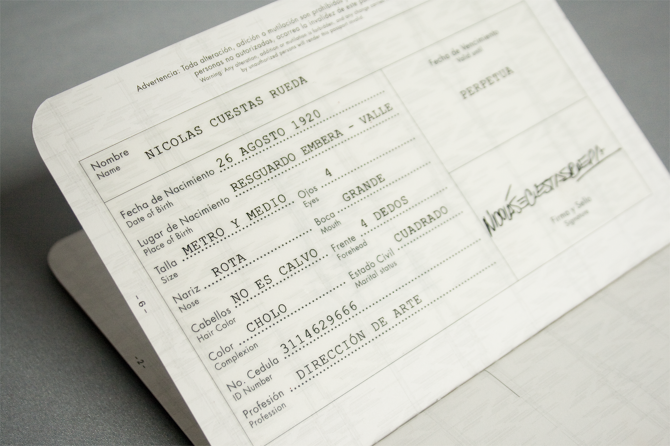 Advertencia: Toda alteración, adición o mutilación son prohibidas
personas no autorizadas, acarrea la invalidez de este
Warning: Any alteration, addition or mutilation
by unauthorised persons will render this passport invalid
Nombre NICOLAS CUESTAS RUEDA
Name
Fecha de Nacimiento 26 AGOSTO 1920
Date of Birth
Lugar de Nacimiento RESGUARDO EMBERA - VALLE
Place of Birth
Talla METRO Y MEDIO Ojos 4
Size Eyes
Nariz ROTA Boca GRANDE
Nose Mouth
Cabellos NO ES CALVO Frente 4 DEDOS
Hair Color Forehead
Color CHOLO Estado Civil CUADRADO
Complexion Marital status
No. Cedula 3114629666
ID Number
Profesión DIRECCIÓN DE ARTE
Profession
Fecha de Vencimiento
Valid until
PERPETUA
NICOLÁS CUESTAS RUEDA
Firma y Sello
Signature
-6-